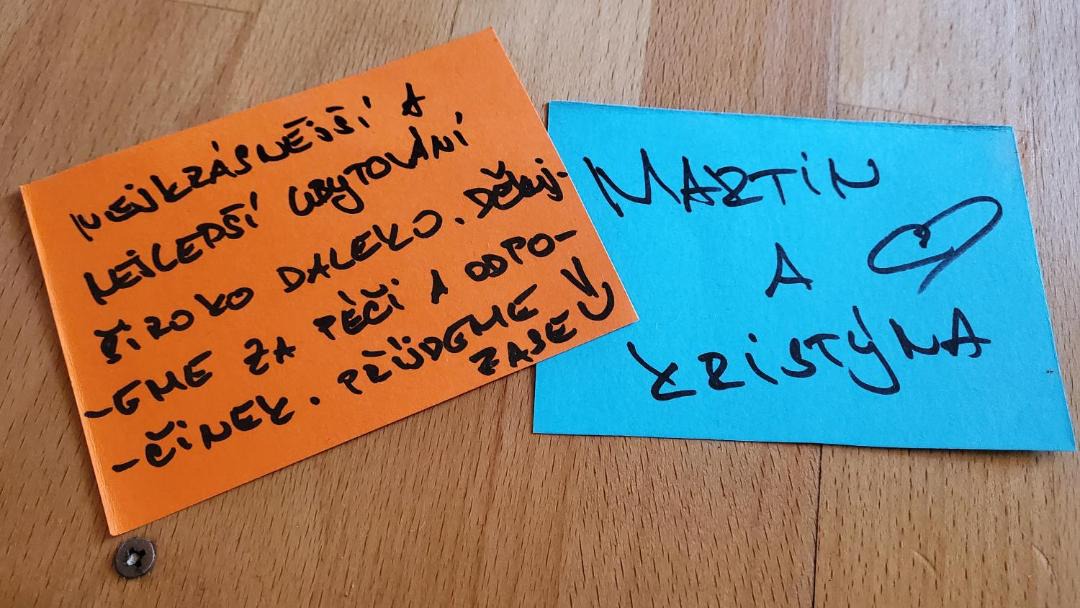 NEJKRÁSNĚJŠÍ A
NEJLEPŠÍ UBYTOVÁNÍ
ŠIROKO DALEKO. DĚKUJ-
-EME ZA PÉČI A ODPO-
-ČINEK. PŘIJDEME
ZASE
MARTIN
A
KRISTÝNA